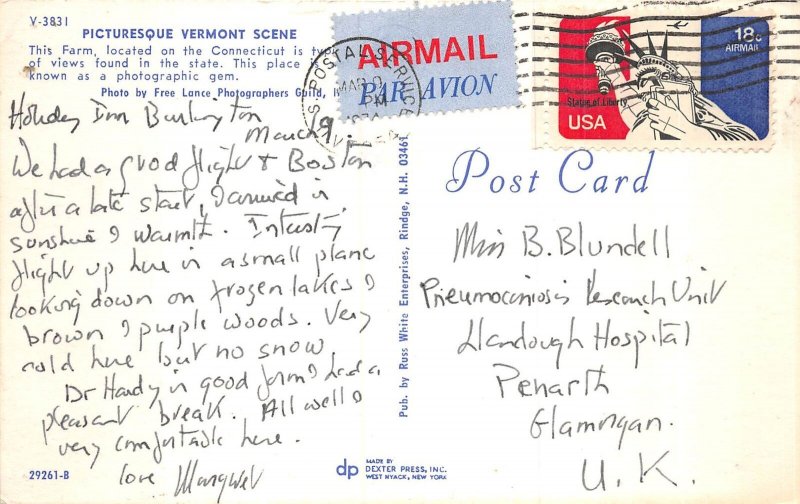 V-3831
PICTURESQUE VERMONT SCENE
This Farm, located on the Connecticut is typ
of views found in the state. This place is
known as a photographic gem.
Photo by Free Lance Photographers Guild, I
AIRMAIL
PAR AVION
U.S. POSTAL SERVICE
MAR
PM
18c
AIRMAIL
Statue of Liberty
USA
Holiday Inn Burlington
March 9.
We had a good flight to Boston
after a late start, & arrived in
sunshine & warmth. Interesting
flight up here in a small plane
looking down on frozen lakes &
brown & purple woods. Very
cold here but no snow
Dr Hardy in good form & had a
pleasant break. All well &
very comfortable here.
love Margaret
29261-B
Pub. by Russ White Enterprises, Rindge, N.H. 03461
dp MADE BY
DEXTER PRESS, INC.
WEST NYACK, NEW YORK
Post Card
Miss B. Blundell
Pneumoconiosis Research Unit
Llandough Hospital
Penarth
Glamorgan.
U.K.